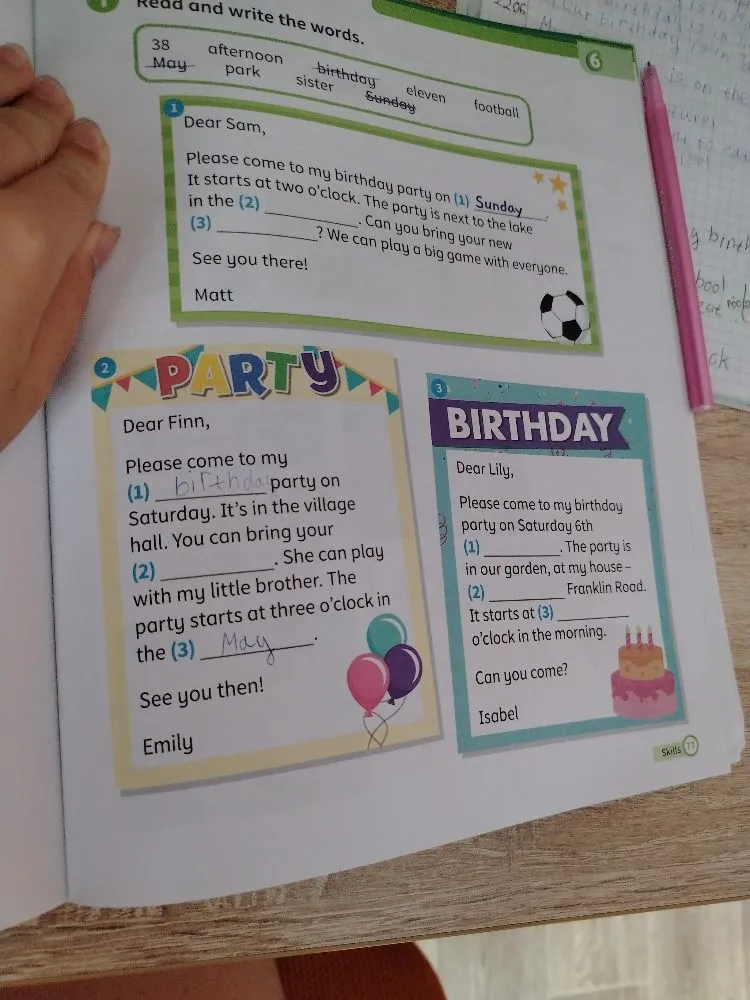 1 Read and write the words.
6
38 afternoon birthday eleven football
May park sister Sunday
1
Dear Sam,
Please come to my birthday party on (1) Sunday.
It starts at two o'clock. The party is next to the lake
in the (2) ____________. Can you bring your new
(3) ____________? We can play a big game with everyone.
See you there!
Matt
2
PARTY
Dear Finn,
Please come to my
(1) birthday party on
Saturday. It's in the village
hall. You can bring your
(2) ____________. She can play
with my little brother. The
party starts at three o'clock in
the (3) May.
See you then!
Emily
3
BIRTHDAY
Dear Lily,
Please come to my birthday
party on Saturday 6th
(1) ____________. The party is
in our garden, at my house –
(2) ____________ Franklin Road.
It starts at (3) ____________
o'clock in the morning.
Can you come?
Isabel
Skills 77